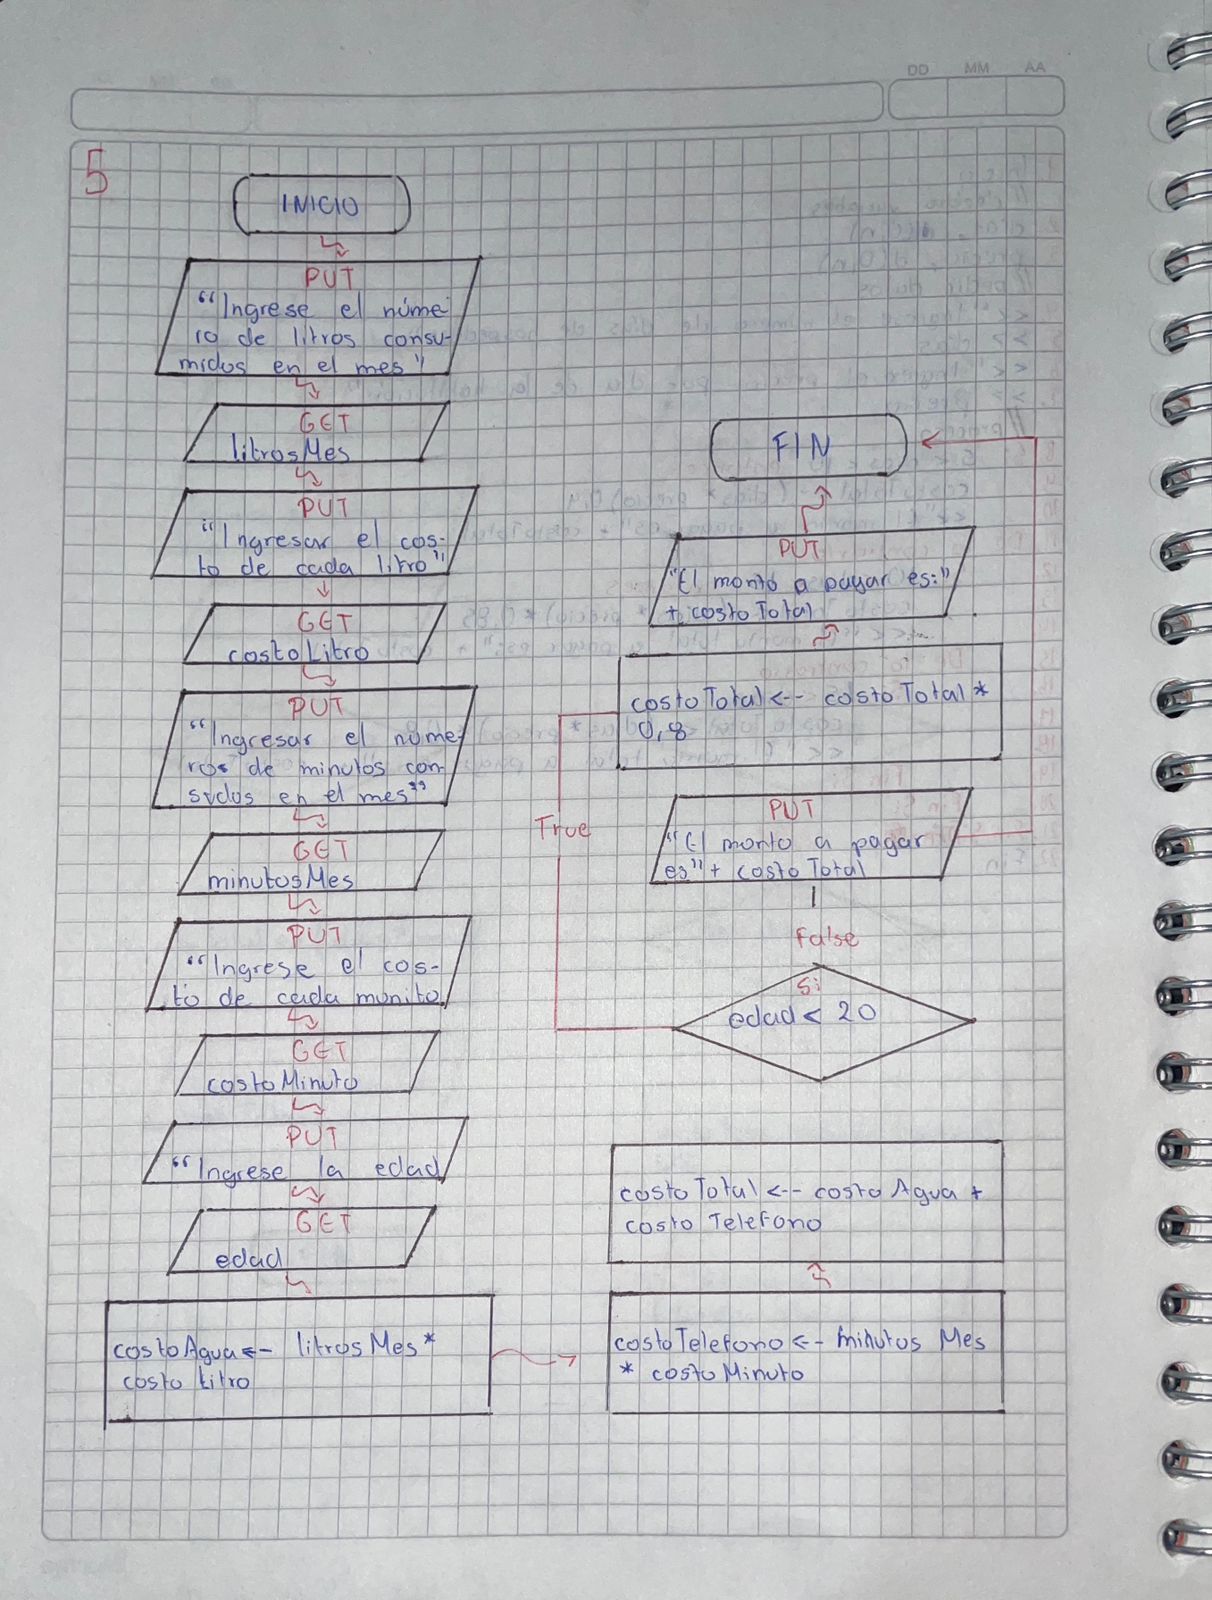 DD MM AA
5
INICIO
PUT
"Ingrese el núme-
ro de litros consu-
midos en el mes"
GET
litrosMes
PUT
"Ingresar el cos-
to de cada litro"
GET
costoLitro
PUT
"Ingresar el núme-
ros de minutos con-
sudos en el mes"
GET
minutosMes
PUT
"Ingrese el cos-
to de cada munito
GET
costoMinuto
PUT
"Ingrese la edad
GET
edad
costoAgua <-- litrosMes *
costo Litro
costoTelefono <-- minutos Mes
* costoMinuto
costoTotal <-- costoAgua +
costo Telefono
Si
edad < 20
False
PUT
"El monto a pagar
es" + costoTotal
True
costoTotal <-- costoTotal *
0,8
PUT
"El monto a pagar es:"
+ costoTotal
FIN